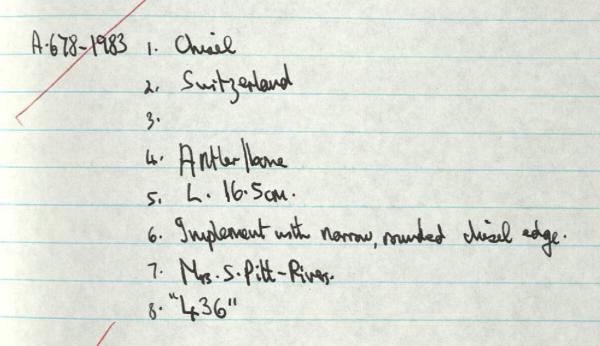 A.678-1983 1. Chisel
2. Switzerland
3.
4. Antler/bone
5. L. 16.5cm.
6. Implement with narrow, rounded chisel edge.
7. Mrs. S. Pitt-Rivers.
8. "436"